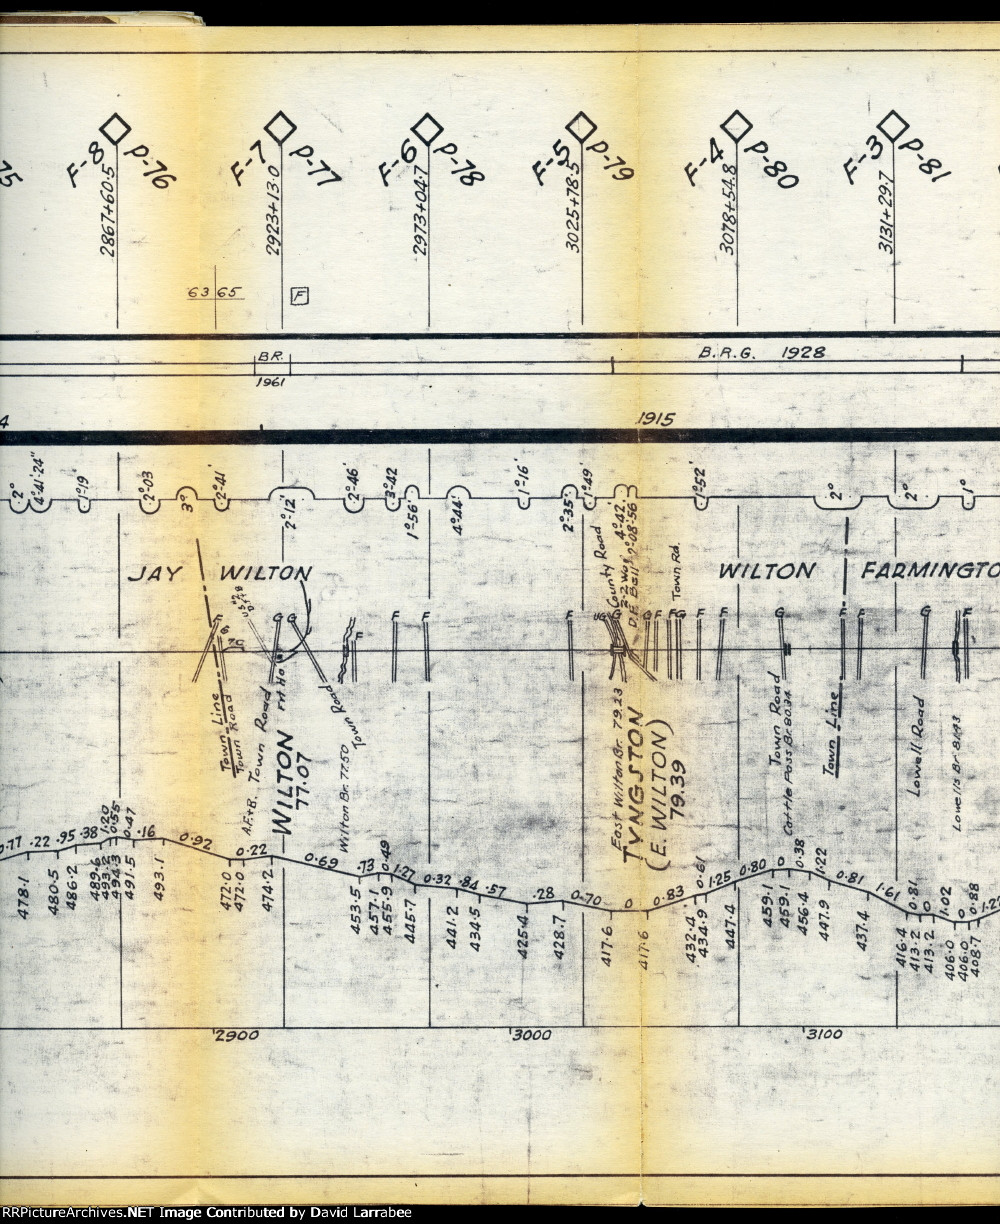 75
F-8 P-76
2867+60.5
F-7 P-77
2923+13.0
F-6 P-78
2973+04.7
F-5 P-79
3025+78.5
F-4 P-80
3078+54.8
F-3 P-81
3131+29.7
63 65
F
BR.
1961
B.R.G. 1928
4
1915
2°
4°41'·24"
1°19'
2°-03
3°
2°41'
2°-12'
2°-46'
3°-42
1°56'
4°-44'
1°-16'
2°35'
1°-49'
4°-42'
1°52'
2°
2°
1°
JAY
WILTON
WILTON
FARMINGTO
County Road
2-2 Way
D.E. Ball
Town Rd.
F
T.C.
G G
F
F F
F
UG G
G F F G F F
G
F F
G
F
Town Line
Town Road
A.F.+B. Town Road
Frt. Ho.
WILTON
77.07
Town Road
Wilton Br. 77.50
East Wilton Br. 79.23
TYNGSTON
(E. WILTON)
79.39
Town Road
Cattle Pass Br. 80.34
Town Line
Lowell Road
Lowells Br. 81.43
0.77 .22 .95 .38 1.20 0.55 0.47 .16 0.92 0.22 0.69 .73 0.49 1.27 0.32 .84 .57 .28 0.70 0 0.83 0.61 1.25 0.80 0 0.38 1.22 0.81 1.61 0.81 0 1.02 0 0.88 1.22
478.1
480.5
486.2
489.6
493.2
494.3
491.5
493.1
472.0
472.0
474.2
453.5
457.1
455.9
445.7
441.2
434.5
425.4
428.7
417.6
417.6
432.4
434.9
447.4
459.1
459.1
456.4
447.9
437.4
416.4
413.2
413.2
406.0
406.0
408.7
2900
3000
3100
RRPictureArchives.NET Image Contributed by David Larrabee